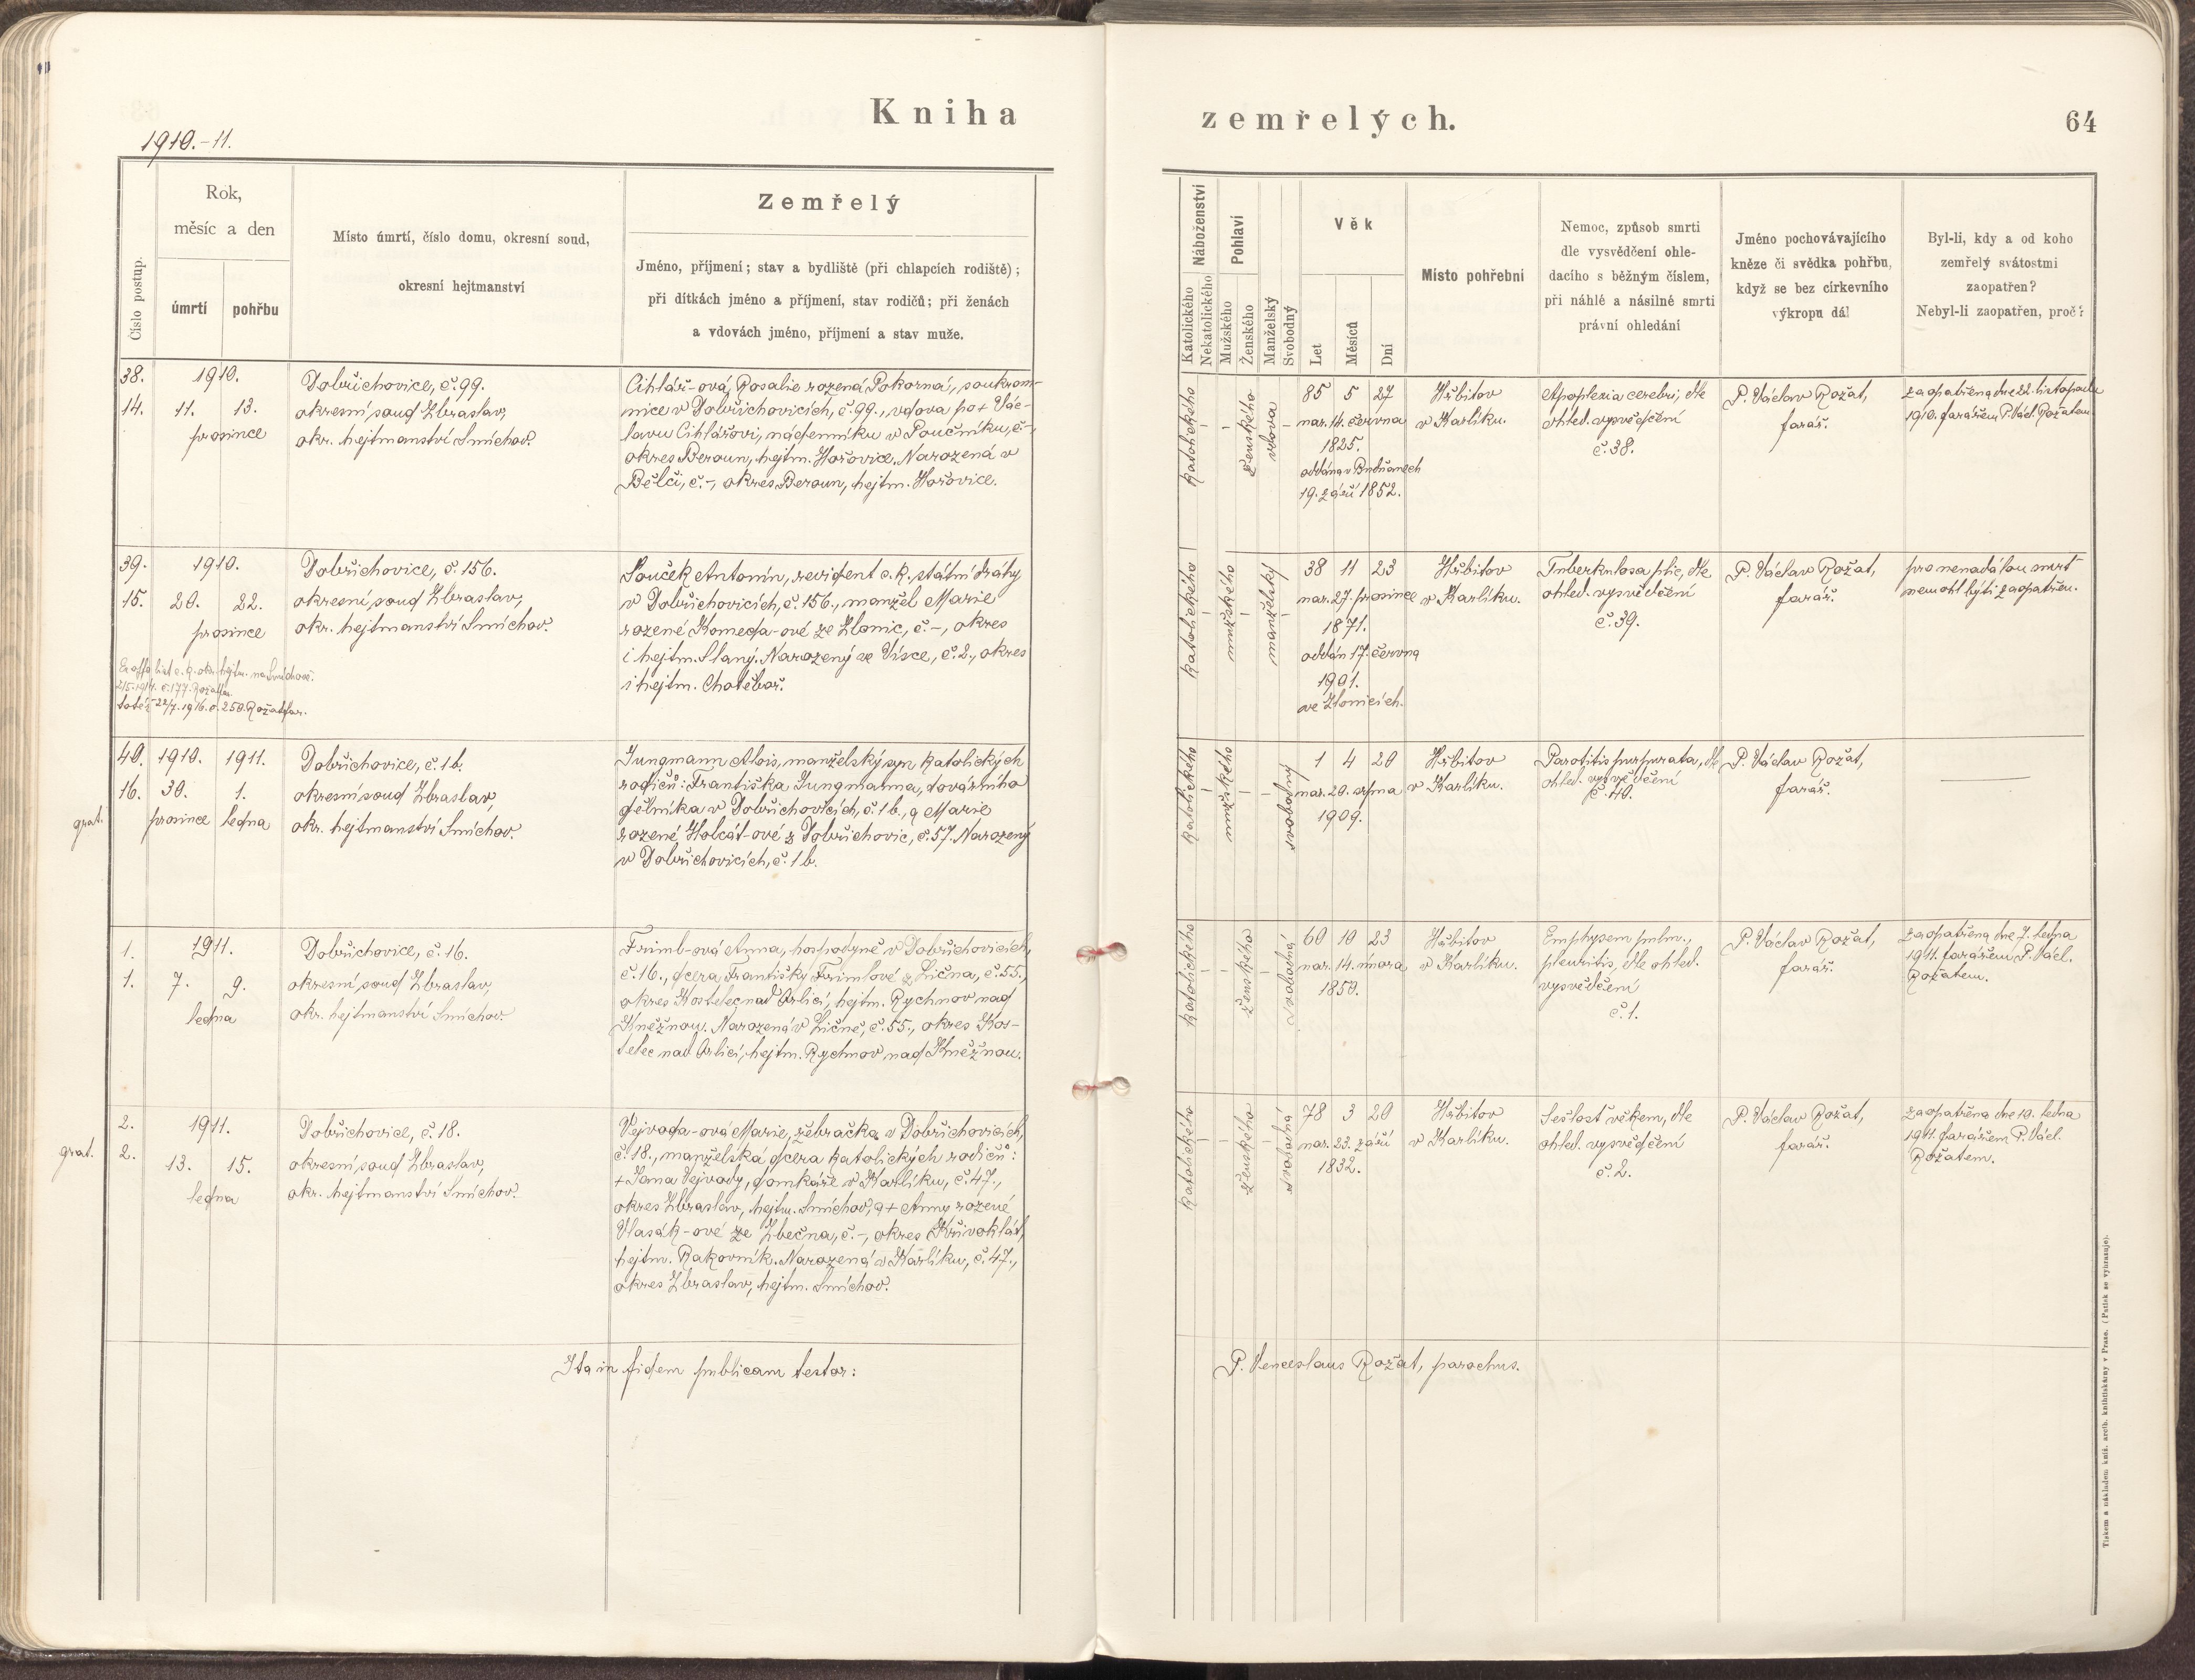 Kniha
zemřelých.
64
1910.-11.
Číslo postup.
Rok,
měsíc a den
úmrtí
pohřbu
Místo úmrtí, číslo domu, okresní soud,
okresní hejtmanství
Zemřelý
Jméno, příjmení; stav a bydliště (při chlapcích rodiště);
při dítkách jméno a příjmení, stav rodičů; při ženách
a vdovách jméno, příjmení a stav muže.
Náboženství
Katolického
Nekatolického
Pohlaví
Mužského
Ženského
Manželský
Svobodný
Věk
Let
Měsíců
Dní
Místo pohřební
Nemoc, způsob smrti
dle vysvědčení ohle-
dacího s běžným číslem,
při náhlé a násilné smrti
právní ohledání
Jméno pochovávajícího
kněze či svědka pohřbu,
když se bez církevního
výkropu dál
Byl-li, kdy a od koho
zemřelý svátostmi
zaopatřen?
Nebyl-li zaopatřen, proč?
38.
14.
1910.
11. 13.
prosince
Dobřichovice, č. 99.
okresní soud Zbraslav,
okr. hejtmanství Smíchov.
Cihlář-ová Rosalie rozená Pokorná, soukrom-
nice v Dobřichovicích, č. 99., vdova po + Vác-
lavu Cihlářovi, nádenníku v Poučníku, č.-,
okres Beroun, hejtm. Hořovice. Narozená v
Bělči, č.-, okres Beroun, hejtm. Hořovice.
katolického
-
-
ženského
vdova
-
85 5 27
nar. 14. června
1825.
oddána v Budňanech
19. září 1852.
Hřbitov
v Karlíku.
Apoplexia cerebri, dle
ohled. vysvědčení
č. 38.
P. Václav Rožat,
farář.
zaopatřena dne 22. listopadu
1910. farářem P. Václ. Rožatem.
39.
15.
1910.
20. 22.
prosince
Dobřichovice, č. 156.
okresní soud Zbraslav,
okr. hejtmanství Smíchov.
totéž 22/7. 1916. č. 250. Rožat far.
Souček Antonín, revident c. k. státní dráhy
v Dobřichovicích, č. 156., manžel Marie
rozené Komeda-ové ze Zlonic, č.-, okres
i hejtm. Slaný. Narozený ve Vísce, č. 2., okres
i hejtm. Chotěboř.
katolického
-
mužského
-
manželský
-
38 11 23
nar. 27. prosince
1871.
oddán 17. června
1901.
ve Zlonicích.
Hřbitov
v Karlíku.
Tuberkulosa plic, dle
ohled. vysvědčení
č. 39.
P. Václav Rožat,
farář.
pro nenadálou smrt
nemohl býti zaopatřen.
grat.
40.
16.
1910. 1911.
30. 1.
prosince ledna
Dobřichovice, č. 1b.
okresní soud Zbraslav,
okr. hejtmanství Smíchov.
Jungmann Alois, manželský syn katolických
rodičů: Františka Jungmanna, továrního
dělníka v Dobřichovicích, č. 1b., a Marie
rozené Holcát-ové z Dobřichovic, č. 57. Narozený
v Dobřichovicích, č. 1b.
katolického
-
mužského
-
-
svobodný
1 4 20
nar. 20. srpna
1909.
Hřbitov
v Karlíku.
Parotitis purpurata, dle
ohled. vysvědčení
č. 40.
P. Václav Rožat,
farář.
1.
1.
1911.
7. 9.
ledna
Dobřichovice, č. 16.
okresní soud Zbraslav,
okr. hejtmanství Smíchov.
Frimb-ová Anna, hospodyně v Dobřichovicích,
č. 16., dcera Františky Frimlové z Lična, č. 55.,
okres Kostelec nad Orlicí, hejtm. Rychnov nad
Kněžnou. Narozená v Ličně, č. 55., okres Kos-
telec nad Orlicí, hejtm. Rychnov nad Kněžnou.
katolického
-
-
ženského
-
svobodná
60 10 23
nar. 14. února
1850.
Hřbitov
v Karlíku.
Emphysem pulm.,
pleuritis, dle ohled.
vysvědčení
č. 1.
P. Václav Rožat,
farář.
zaopatřena dne 7. ledna
1911. farářem P. Václ.
Rožatem.
grat.
2.
2.
1911.
13. 15.
ledna
Dobřichovice, č. 18.
okresní soud Zbraslav,
okr. hejtmanství Smíchov.
Vejvoda-ová Marie, žebračka v Dobřichovicích,
č. 18., manželská dcera katolických rodičů:
+ Jana Vejvody, domkáře v Karlíku, č. 47.,
okres Zbraslav, hejtm. Smíchov, a + Anny rozené
Vlasák-ové ze Zbečna, č.-, okres Křivoklát,
hejtm. Rakovník. Narozená v Karlíku, č. 47.,
okres Zbraslav, hejtm. Smíchov.
katolického
-
-
ženského
-
svobodná
78 3 20
nar. 23. září
1832.
Hřbitov
v Karlíku.
Sešlosť věkem, dle
ohled. vysvědčení
č. 2.
P. Václav Rožat,
farář.
zaopatřena dne 10. ledna
1911. farářem P. Václ.
Rožatem.
Ita in fidem publicam testor:
P. Venceslaus Rožat, parochus.
Tiskem a nákladem kníž. arcib. knihtiskárny v Praze. (Patisk se vyhrazuje).